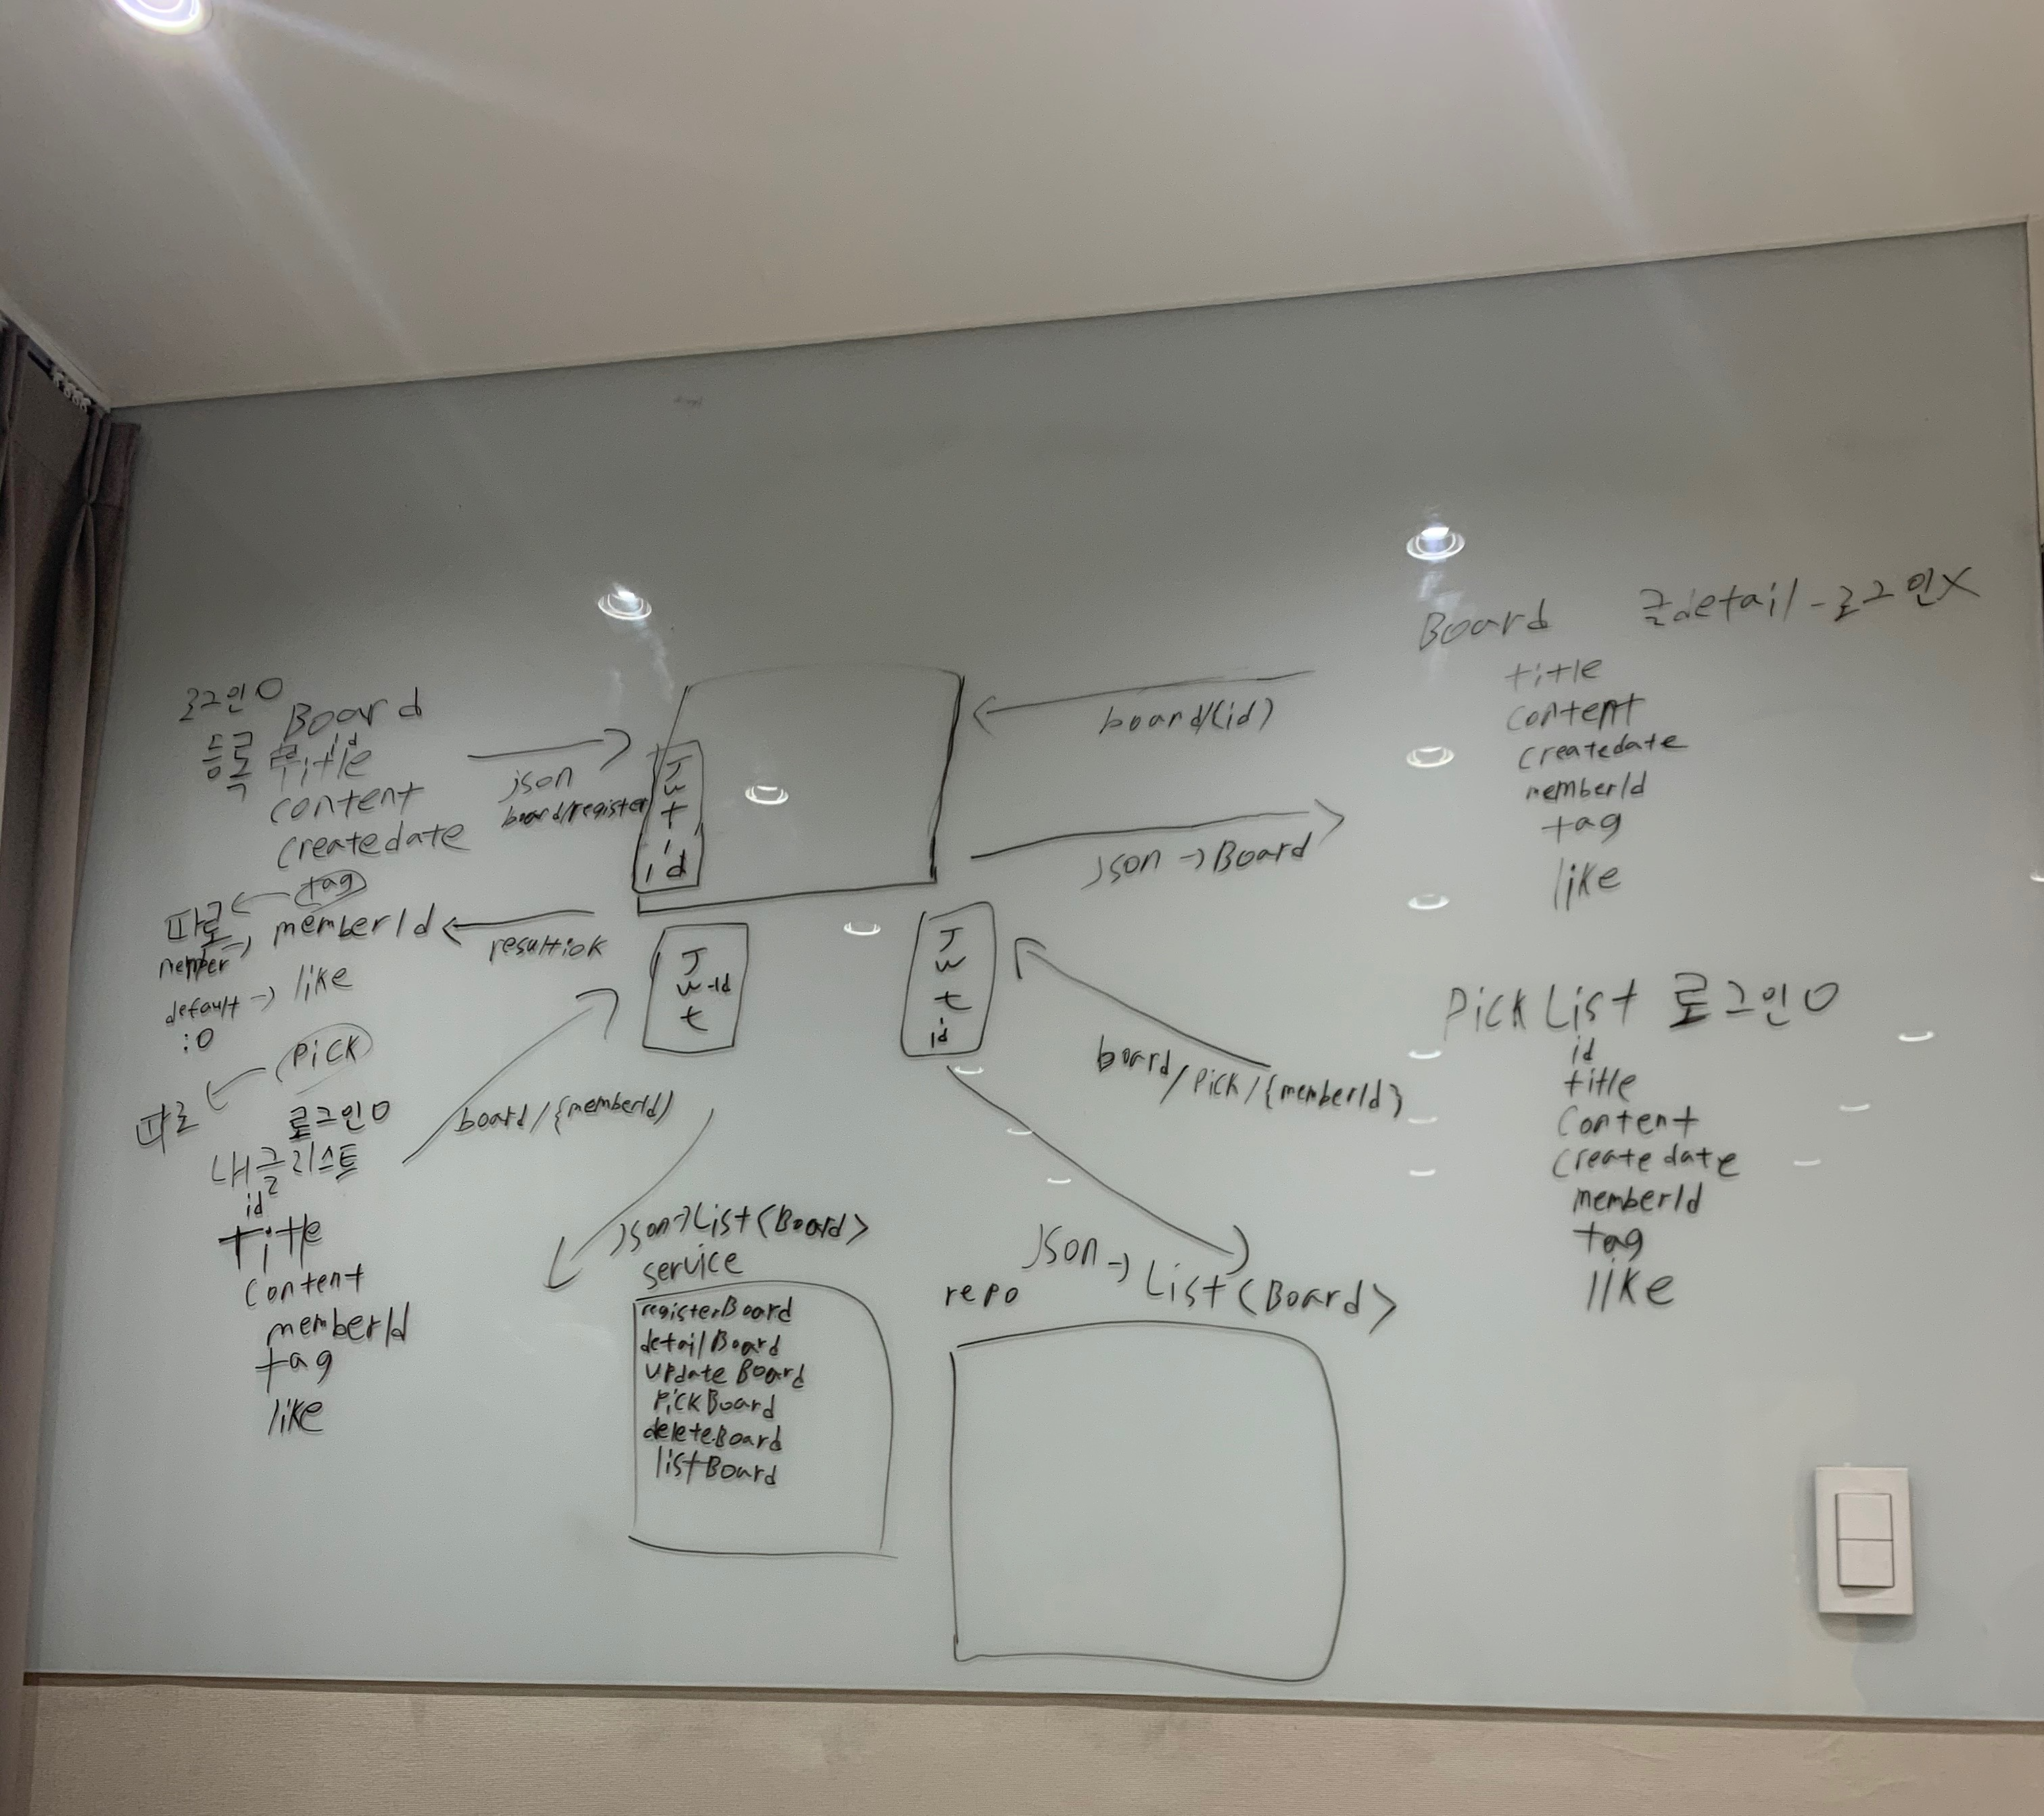 로그인O
Board
등록
id
title
content
createdate
tag
따로
memberId
member →
like
default →
:0
PiCK
따로
로그인O
내글리스트
id
title
content
memberId
tag
like
json
board/register
Jwt
id
resultiok
Jwt
-id
board/{memberId)
Json→List<Board>
service
registerBoard
detailBoard
updateBoard
PiCKBoard
deleteBoard
listBoard
board/(id)
Json→Board
Jwt
id
board/Pick/{memberId}
Json→List<Board>
repo
Board 글detail-로그인X
title
content
createdate
memberId
tag
like
PicK List 로그인O
id
title
Content
createdate
memberId
tag
like